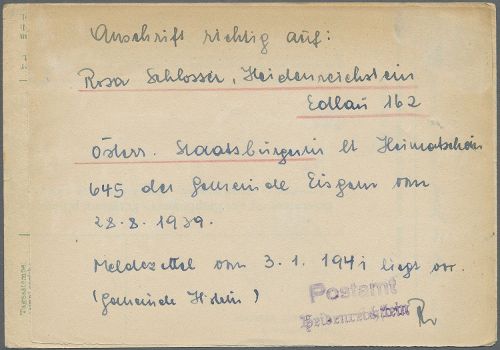 Anschrift richtig auf:
Rosa Schlosser, Heidenreichstein
Edlau 162
Österr. Staatsbürgerin lt Heimatschein
645 der Gemeinde Eisgarn vom
28.8.1939.
Meldezettel vom 3.1.1941 liegt vor.
(Gemeinde Hstein)
Postamt
Heidenreichstein